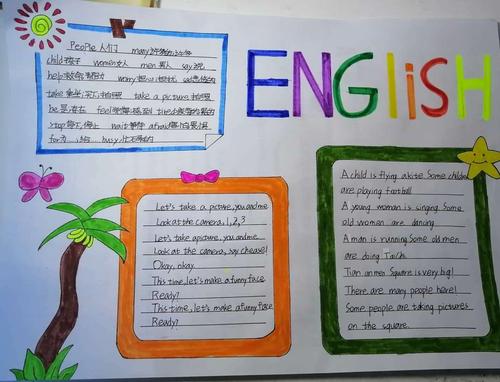 ENGLiSH
People 人们 many 许多的
child 孩子 women 女人 men 男人 say 说
help 救命,帮助 worry 担心,担忧 sad
take take a picture 拍照
be 是,在 feel
stop 停止 wait 等待 afraid
for busy 忙碌的
Let's take a picture, you and me
Look at the camera, 1, 2, 3
Let's take apicture, you andme
Look at the camera, say cheese!
Okay, okay.
This time, let's make a funny face
Ready?
This time, let's make a funny face
Ready?
A child is flying akite. Some children
are playing football
A young woman is singing. Some
old women are dancing
A man is running. Some old men
are doing Taichi.
Tian an men Square is very big!
There are many people here!
Some people are taking pictures
on the square.